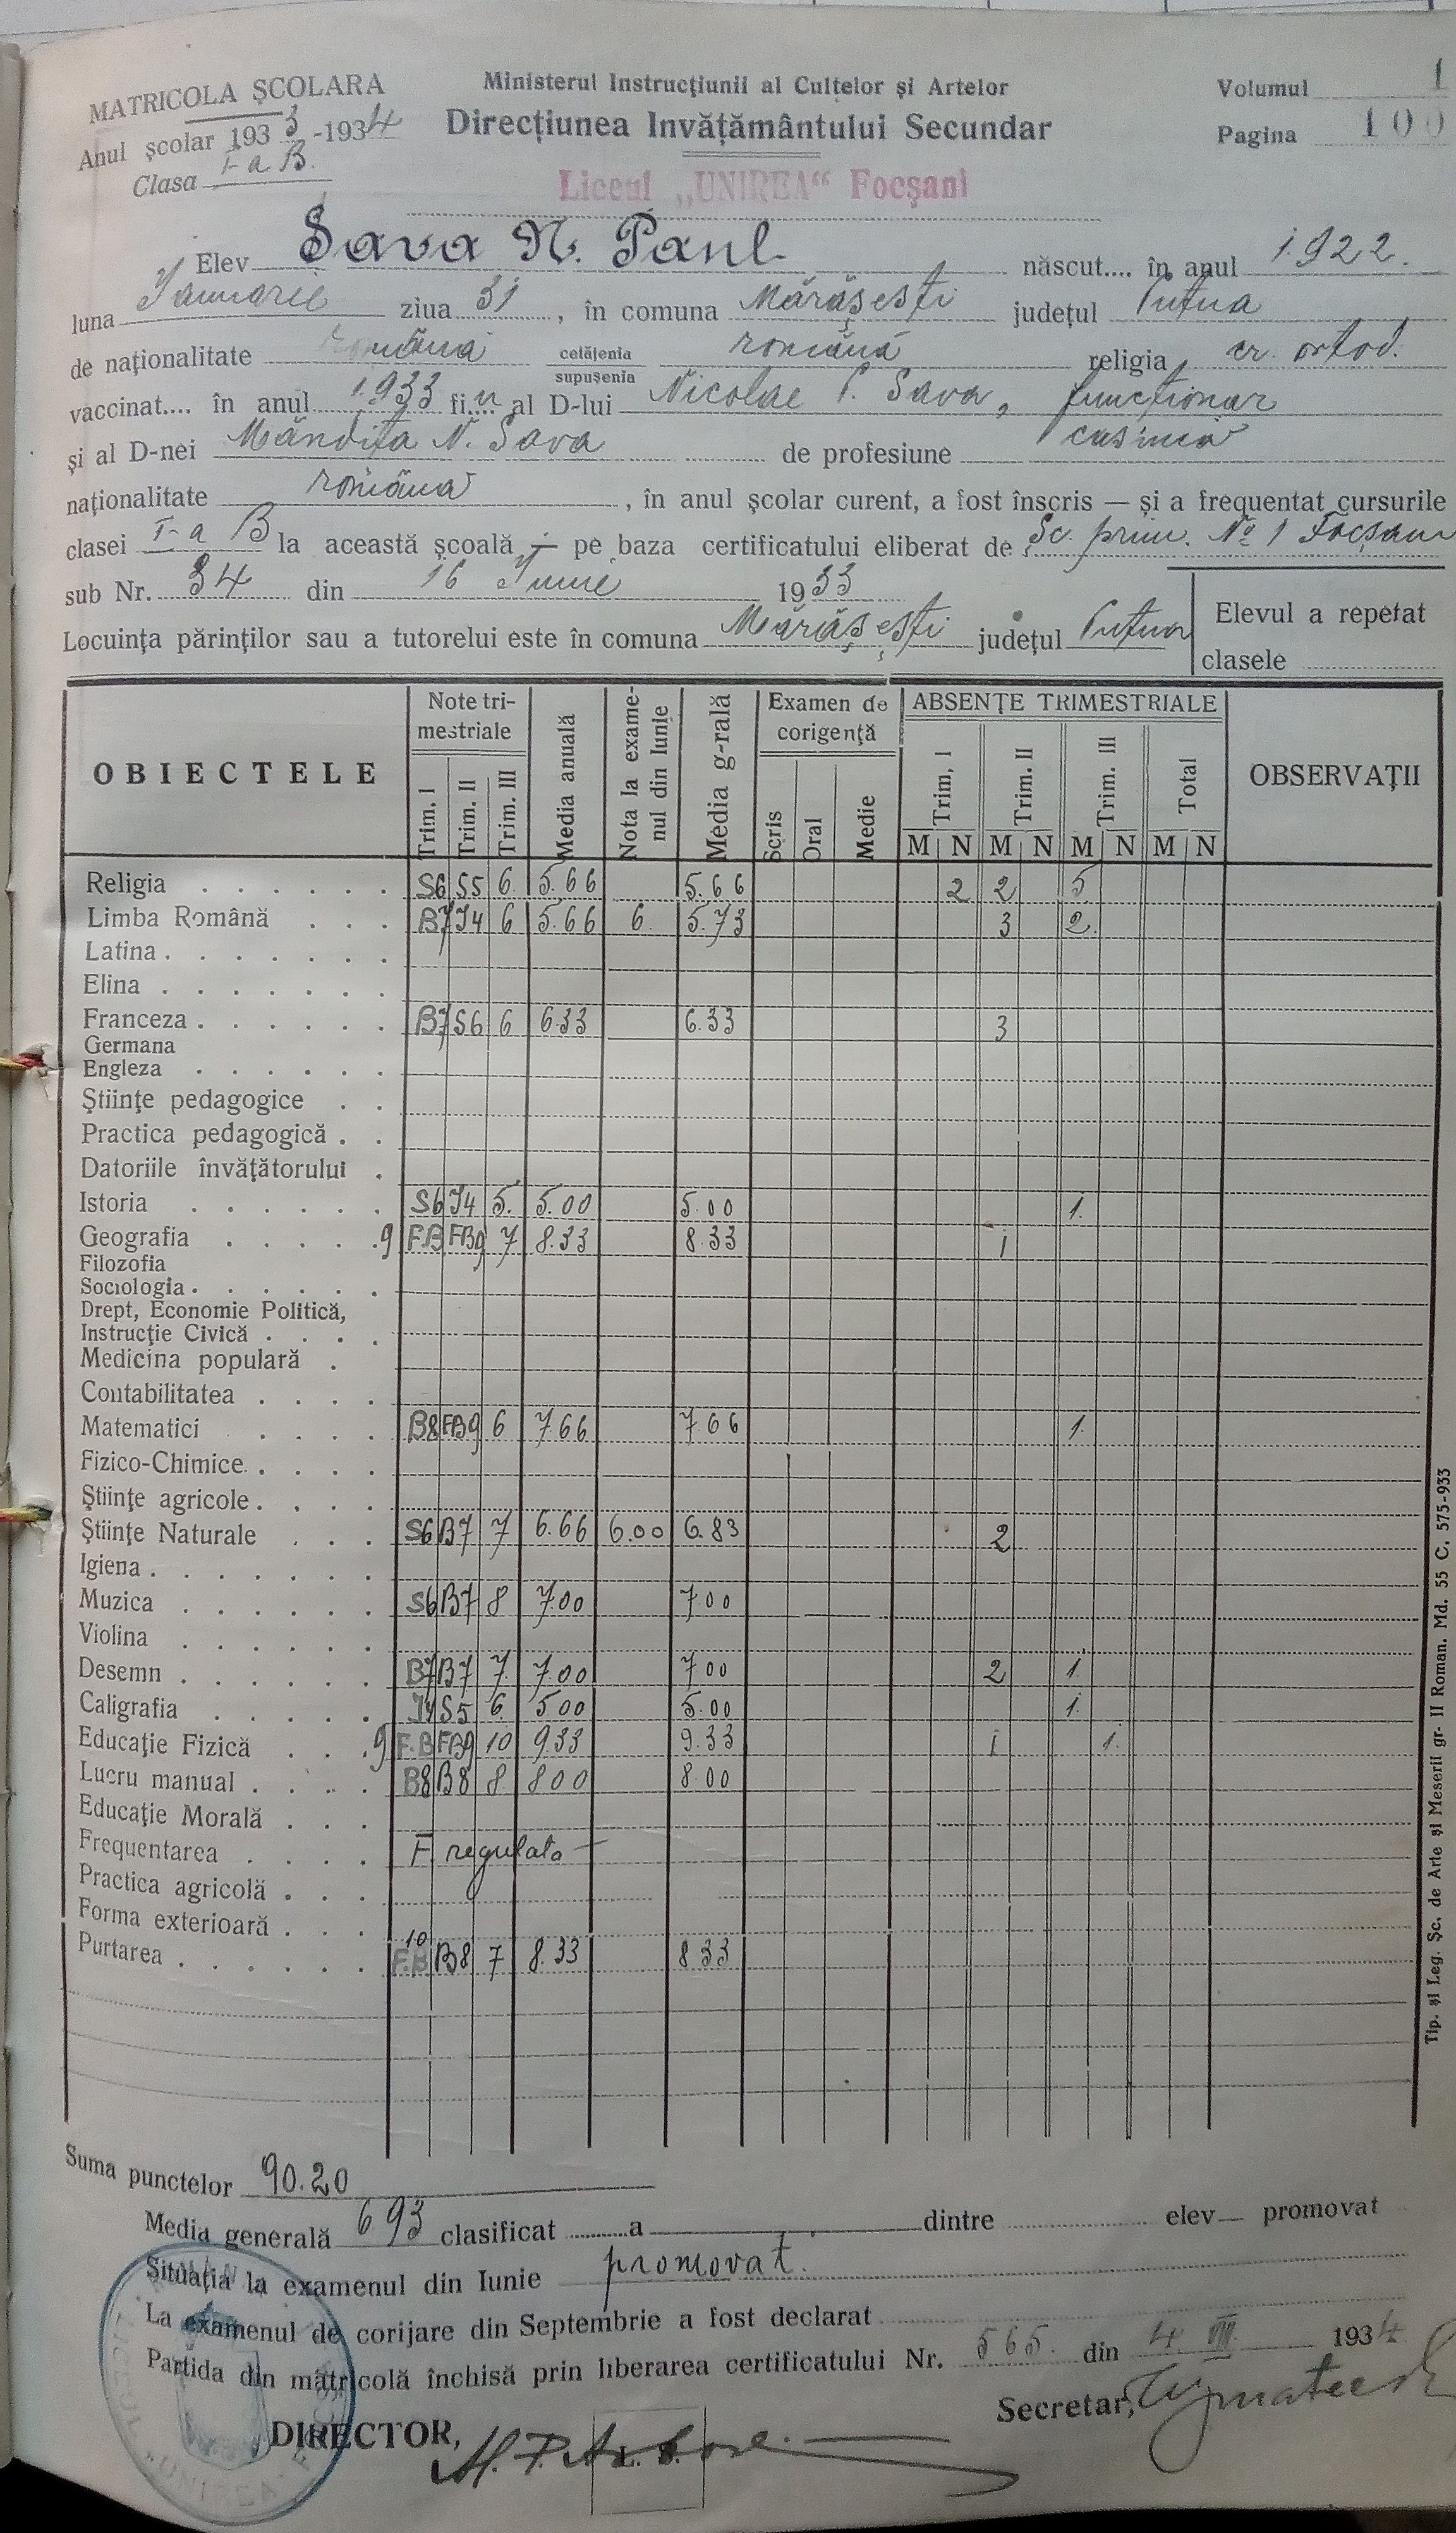 MATRICOLA ŞCOLARA
Anul şcolar 1933-1934
Clasa I-a B.
Ministerul Instrucţiunii al Cultelor şi Artelor
Direcţiunea Invăţământului Secundar
Liceul „UNIREA“ Focşani
Volumul 1
Pagina 100
Elev Sava N. Paul născut.... în anul 1922.
luna Ianuarie ziua 31, în comuna Mărăşeşti judeţul Putna
de naţionalitate română cetăţenia supuşenia română religia cr. ortod.
vaccinat.... în anul 1933 fiu al D-lui Nicolae P. Sava, funcţionar
şi al D-nei Mândiţa N. Sava de profesiune casnică
naţionalitate română, în anul şcolar curent, a fost înscris — şi a frequentat cursurile
clasei I-a B la această şcoală — pe baza certificatului eliberat de Şc. prim. No 1 Focşani
sub Nr. 34 din 16 Iunie 1933
Locuinţa părinţilor sau a tutorelui este în comuna Mărăşeşti judeţul Putna
Elevul a repetat
clasele
OBIECTELE Note trimestriale Trim. I Trim. II Trim. III Media anuală Nota la examenul din Iunie Media g-rală Examen de corigenţă Scris Oral Medie ABSENŢE TRIMESTRIALE Trim. I Trim. II Trim. III Total OBSERVAŢII
M N M N M N M N
Religia S6 S5 6. 5.66 5.66 2 2 5
Limba Română B7 I4 6 5.66 6. 5.73 3 2.
Latina
Elina
Franceza B7 S6 6 6.33 6.33 3
Germana
Engleza
Ştiinţe pedagogice
Practica pedagogică
Datoriile învăţătorului
Istoria S6 I4 5. 5.00 5.00 1.
Geografia 9 F.B FB9 7 8.33 8.33 1
Filozofia
Sociologia
Drept, Economie Politică,
Instrucţie Civică
Medicina populară
Contabilitatea
Matematici B8 FB9 6 7.66 7.66 1.
Fizico-Chimice
Ştiinţe agricole
Ştiinţe Naturale S6 B7 7 6.66 6.00 6.83 2
Igiena
Muzica S6 B7 8 7.00 7.00
Violina
Desemn B7 B7 7. 7.00 7.00 2 1.
Caligrafia I4 S5 6. 5.00 5.00 1.
Educaţie Fizică 9 F.B FB9 10 9.33 9.33 1 1.
Lucru manual B8 B8 8. 8.00 8.00
Educaţie Morală
Frequentarea F. regulata —
Practica agricolă
Forma exterioară
Purtarea 10 F.B B8 7 8.33 8.33
Suma punctelor 90.20
Media generală 6 93 clasificat ........a dintre elev— promovat
Situaţia la examenul din Iunie promovat.
La examenul de corijare din Septembrie a fost declarat
Partida din matricolă închisă prin liberarea certificatului Nr. 565. din 4 1934
DIRECTOR,
Secretar,
Tip. şi Leg. Şc. de Arte şi Meserii gr- II Roman. Md. 55 C. 575-933